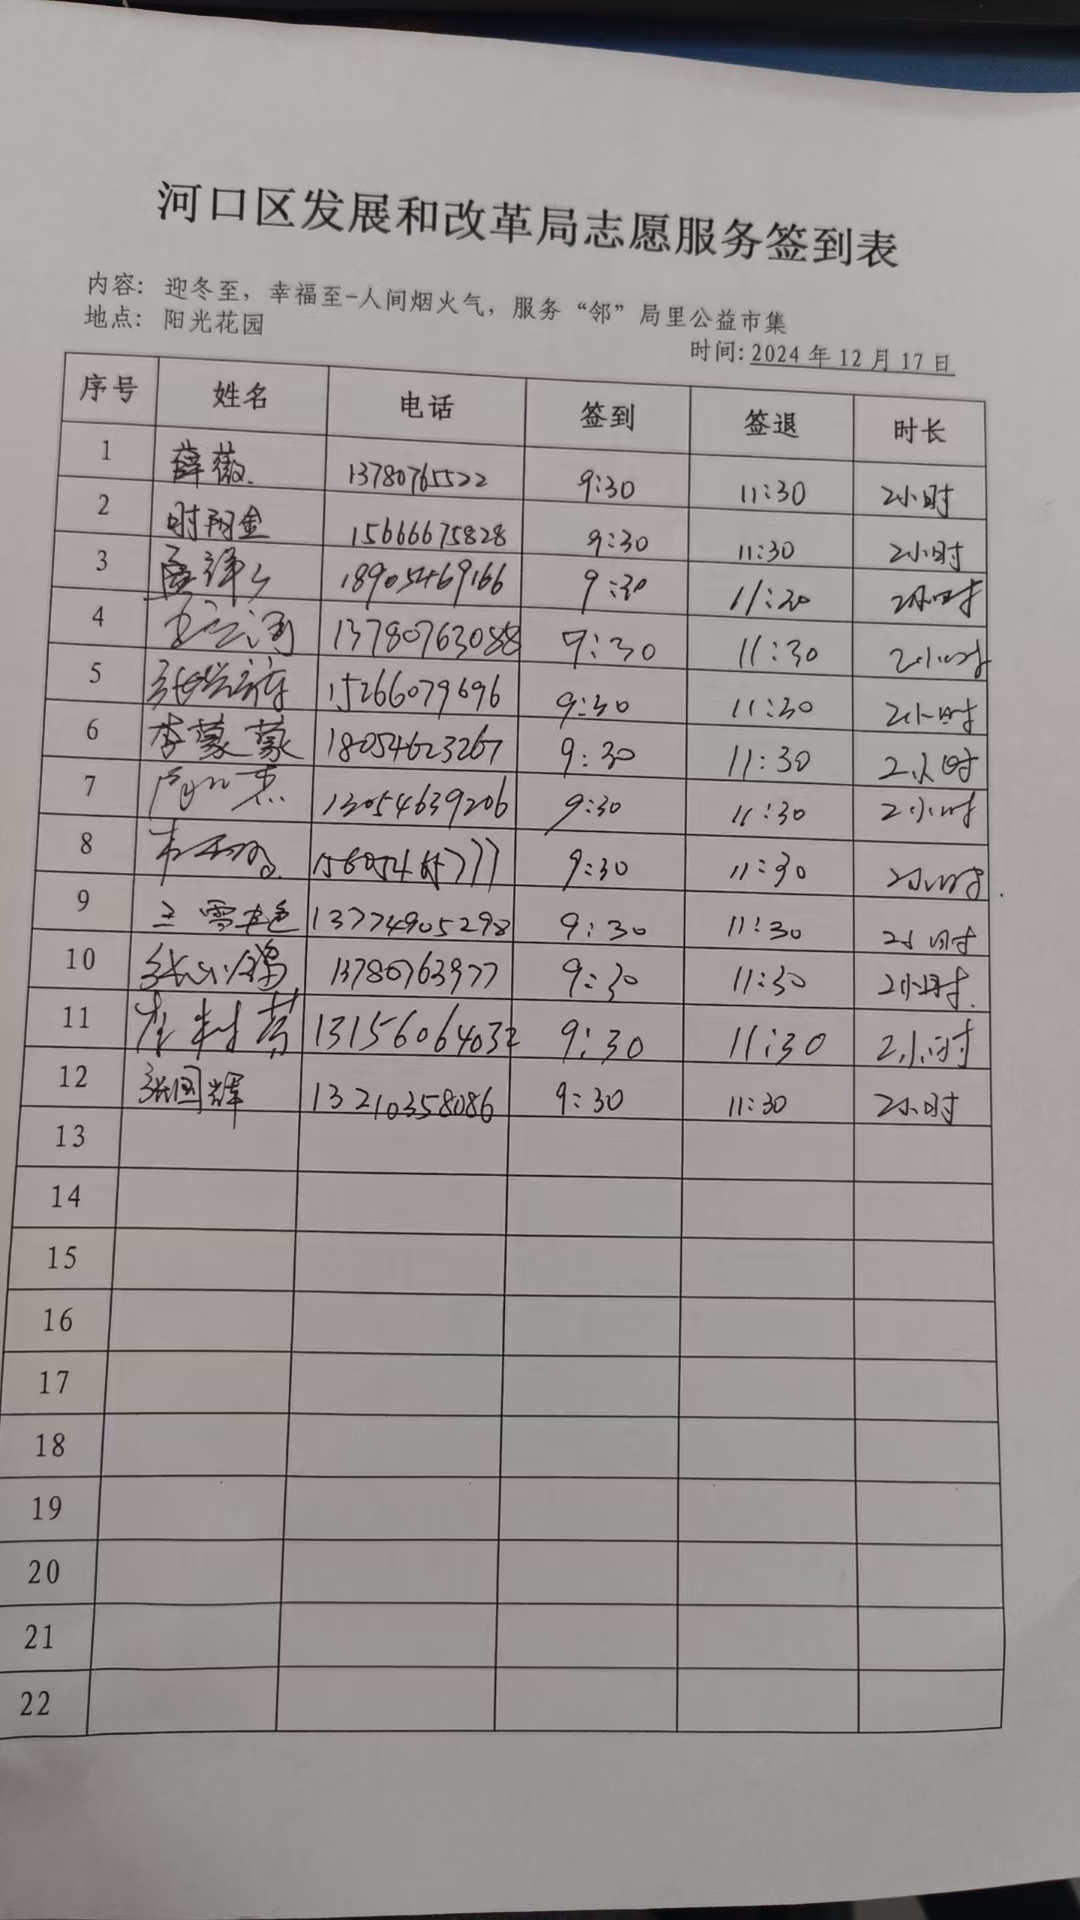 河口区发展和改革局志愿服务签到表
内容: 迎冬至，幸福至-人间烟火气，服务“邻”局里公益市集
地点: 阳光花园
时间: 2024 年 12 月 17 日
序号 姓名 电话 签到 签退 时长
1 薛薇 13780765522 9:30 11:30 2小时
2 时翔金 15666675828 9:30 11:30 2小时
3 18905469166 9:30 11:30 2小时
4 13780763088 9:30 11:30 2小时
5 15266079696 9:30 11:30 2小时
6 李蒙蒙 18054623267 9:30 11:30 2小时
7 13054639206 9:30 11:30 2小时
8 9:30 11:30 2小时
9 王雪艳 13774905298 9:30 11:30 2小时
10 13780763977 9:30 11:30 2小时
11 13156064032 9:30 11:30 2小时
12 张国辉 13210358086 9:30 11:30 2小时
13
14
15
16
17
18
19
20
21
22